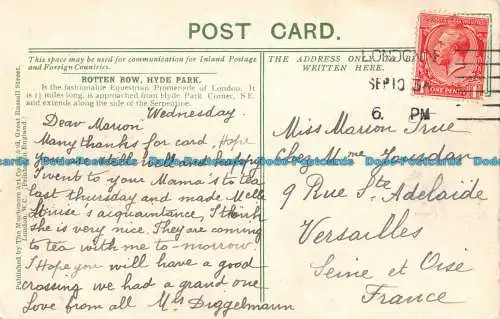 POST CARD.
This space may be used for communication for Inland Postage
and Foreign Countries.
THE ADDRESS ONLY
WRITTEN HERE.
ROTTEN ROW, HYDE PARK.
Is the fashionable Equestrian Promenade of London. It
is 1½ miles long, is approached from Hyde Park Corner, S.E.
and extends along the side of the Serpentine.
Wednesday.
Dear Marion
Many thanks for card, Hope
you are still well and happy
I went to your Mama's to tea
last thursday and made Melle
Louise's acquaintance, I think
she is very nice. They are coming
to tea with me to-morrow.
I Hope you will have a good
crossing we had a grand one
Love from all Mrs Diggelmann
LONDON
SEP 10
6. PM
ONE PENNY
Miss Marion True
Chez Mme
9 Rue Ste Adelaide
Versailles
Seine et Oise
France
Published by The
Great Russell Street,
London, W.C. (Printed in England).